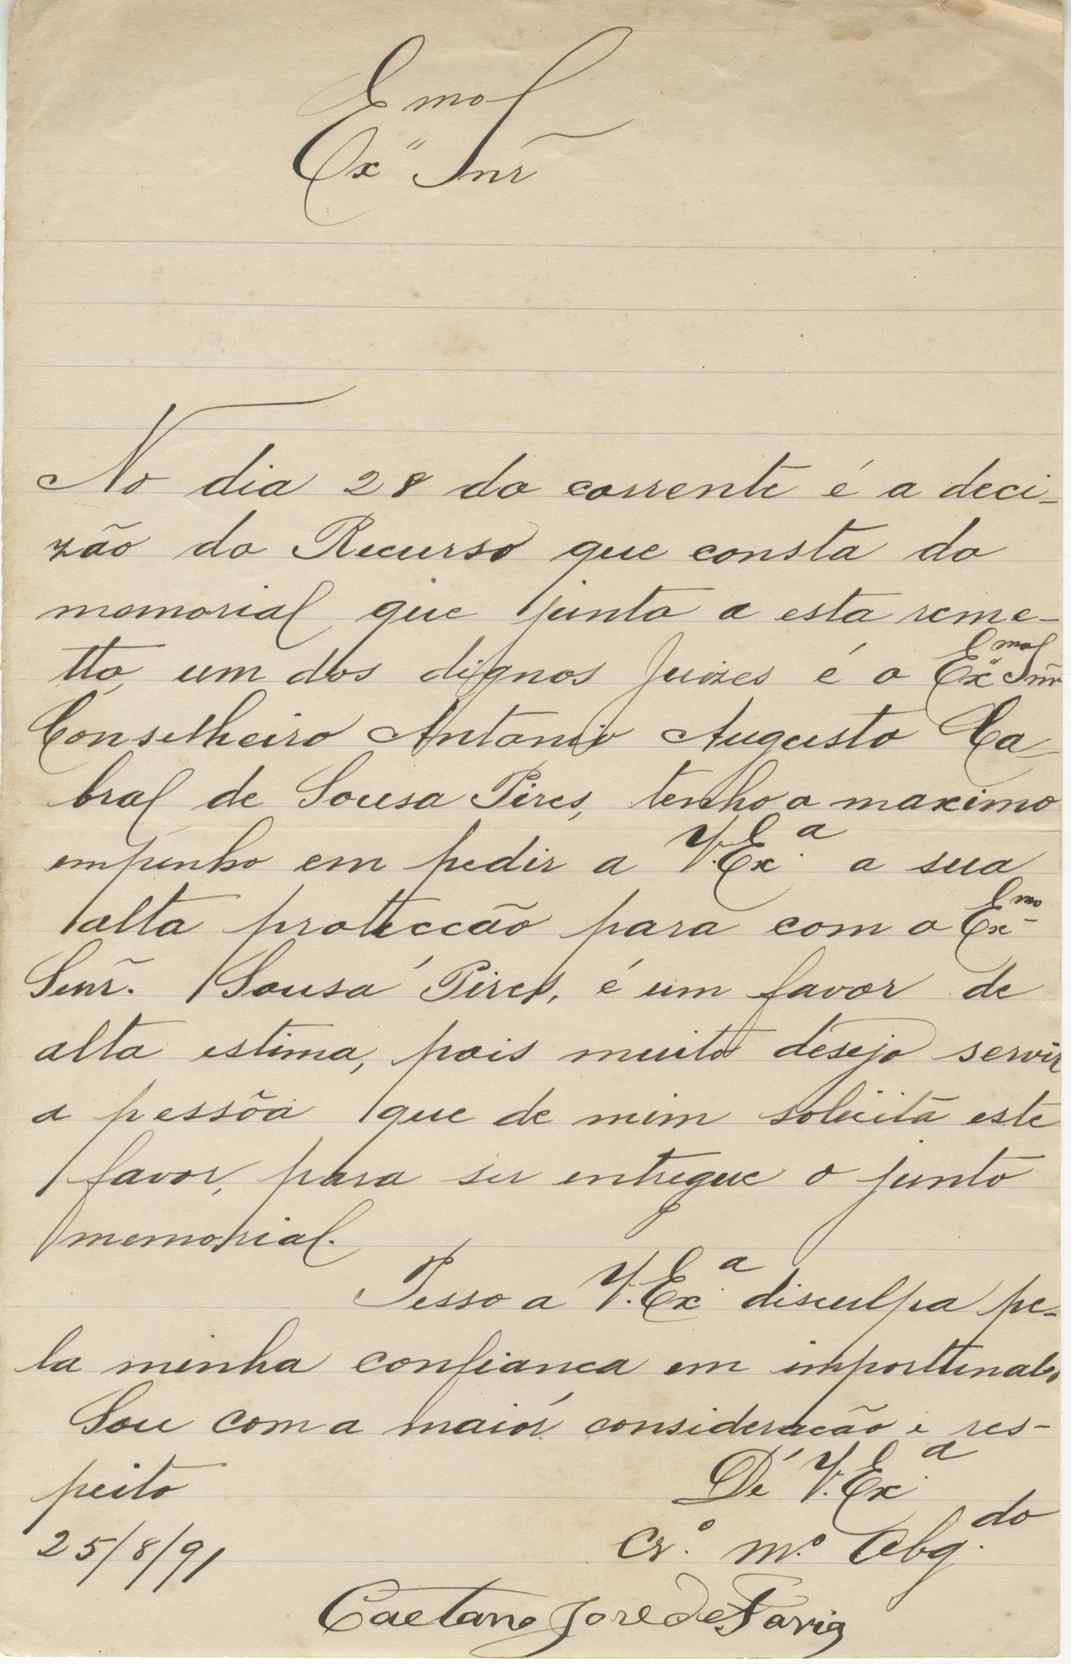 Emo
Ex" Snr
No dia 28 do corrente é a deci-
zão do Recurso que consta do
memorial que junto a esta reme-
tto, um dos dignos Juizes é o Exmo Snr
Conselheiro Antonio Augusto Ca-
bral de Sousa Pires, tenho o maximo
empenho em pedir a V. Ex.a a sua
alta protecção para com o Exmo
Senr. Sousa Pires, é um favor de
alta estima, pois muito desejo servir
a pessõa que de mim solicita este
favor, para ser entregue o junto
memorial.
Pesso a V. Ex.a disculpa pe-
la minha confianca em importunalo.
Sou com a maior consideracão e res-
peito
De V. Ex.a
25/8/91
Cr.o m.o Obg.do
Caetano Jose de Faria